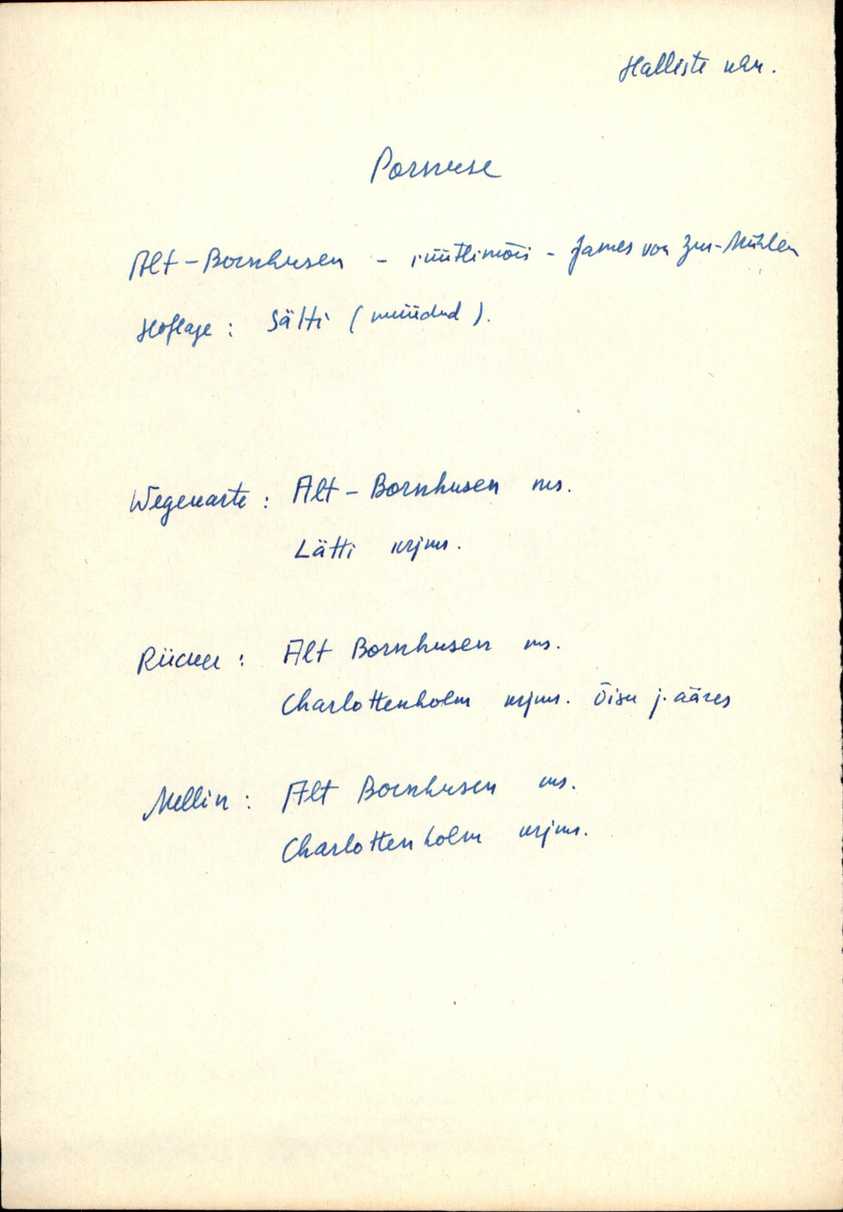 Halliste khk.
Pornuse
Alt-Bornhusen - rüütlimõis - James von Zur-Mühlen
Hoflage: Sätti (müüdud).
Wegekarte: Alt-Bornhusen ms.
Lätti krjms.
Rücker: Alt Bornhusen ms.
Charlottenholm krjms. Õisu j. ääres
Mellin: Alt Bornhusen ms.
Charlottenholm krjms.